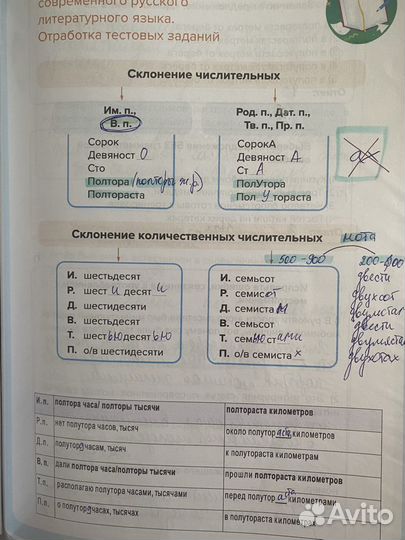 современного русского
литературного языка.
Отработка тестовых заданий
Склонение числительных
Им. п.,
В. п.
Сорок
Девяност О
Сто
Полтора (полторы ж.р)
Полтораста
Род. п., Дат. п.,
Тв. п., Пр. п.
СорокА
Девяност А
Ст А
ПолУтора
Пол У тораста
Склонение количественных числительных
500-900
И. шестьдесят
Р. шест и десят и
Д. шестидесяти
В. шестьдесят
Т. шестьЮдесятьЮ
П. о/в шестидесяти
И. семьсот
Р. семисот
Д. семистам
В. семьсот
Т. семьюстами
П. о/в семистах
двести
двухсот
двумстам
двести
двумястам
двухстах
И.п. полтора часа/ полторы тысячи
полтораста километров
Р.п. нет полутора часов, тысяч
около полутораста километров
Д.п. полутора часам, тысячам
к полутораста километрам
В.п. дали полтора часа/полторы тысячи
прошли полтораста километров
Т.п. располагаю полутора часами, тысячами
перед полутораста километрами
П.п. о полутора часах, тысячах
в полутораста километрах
Avito